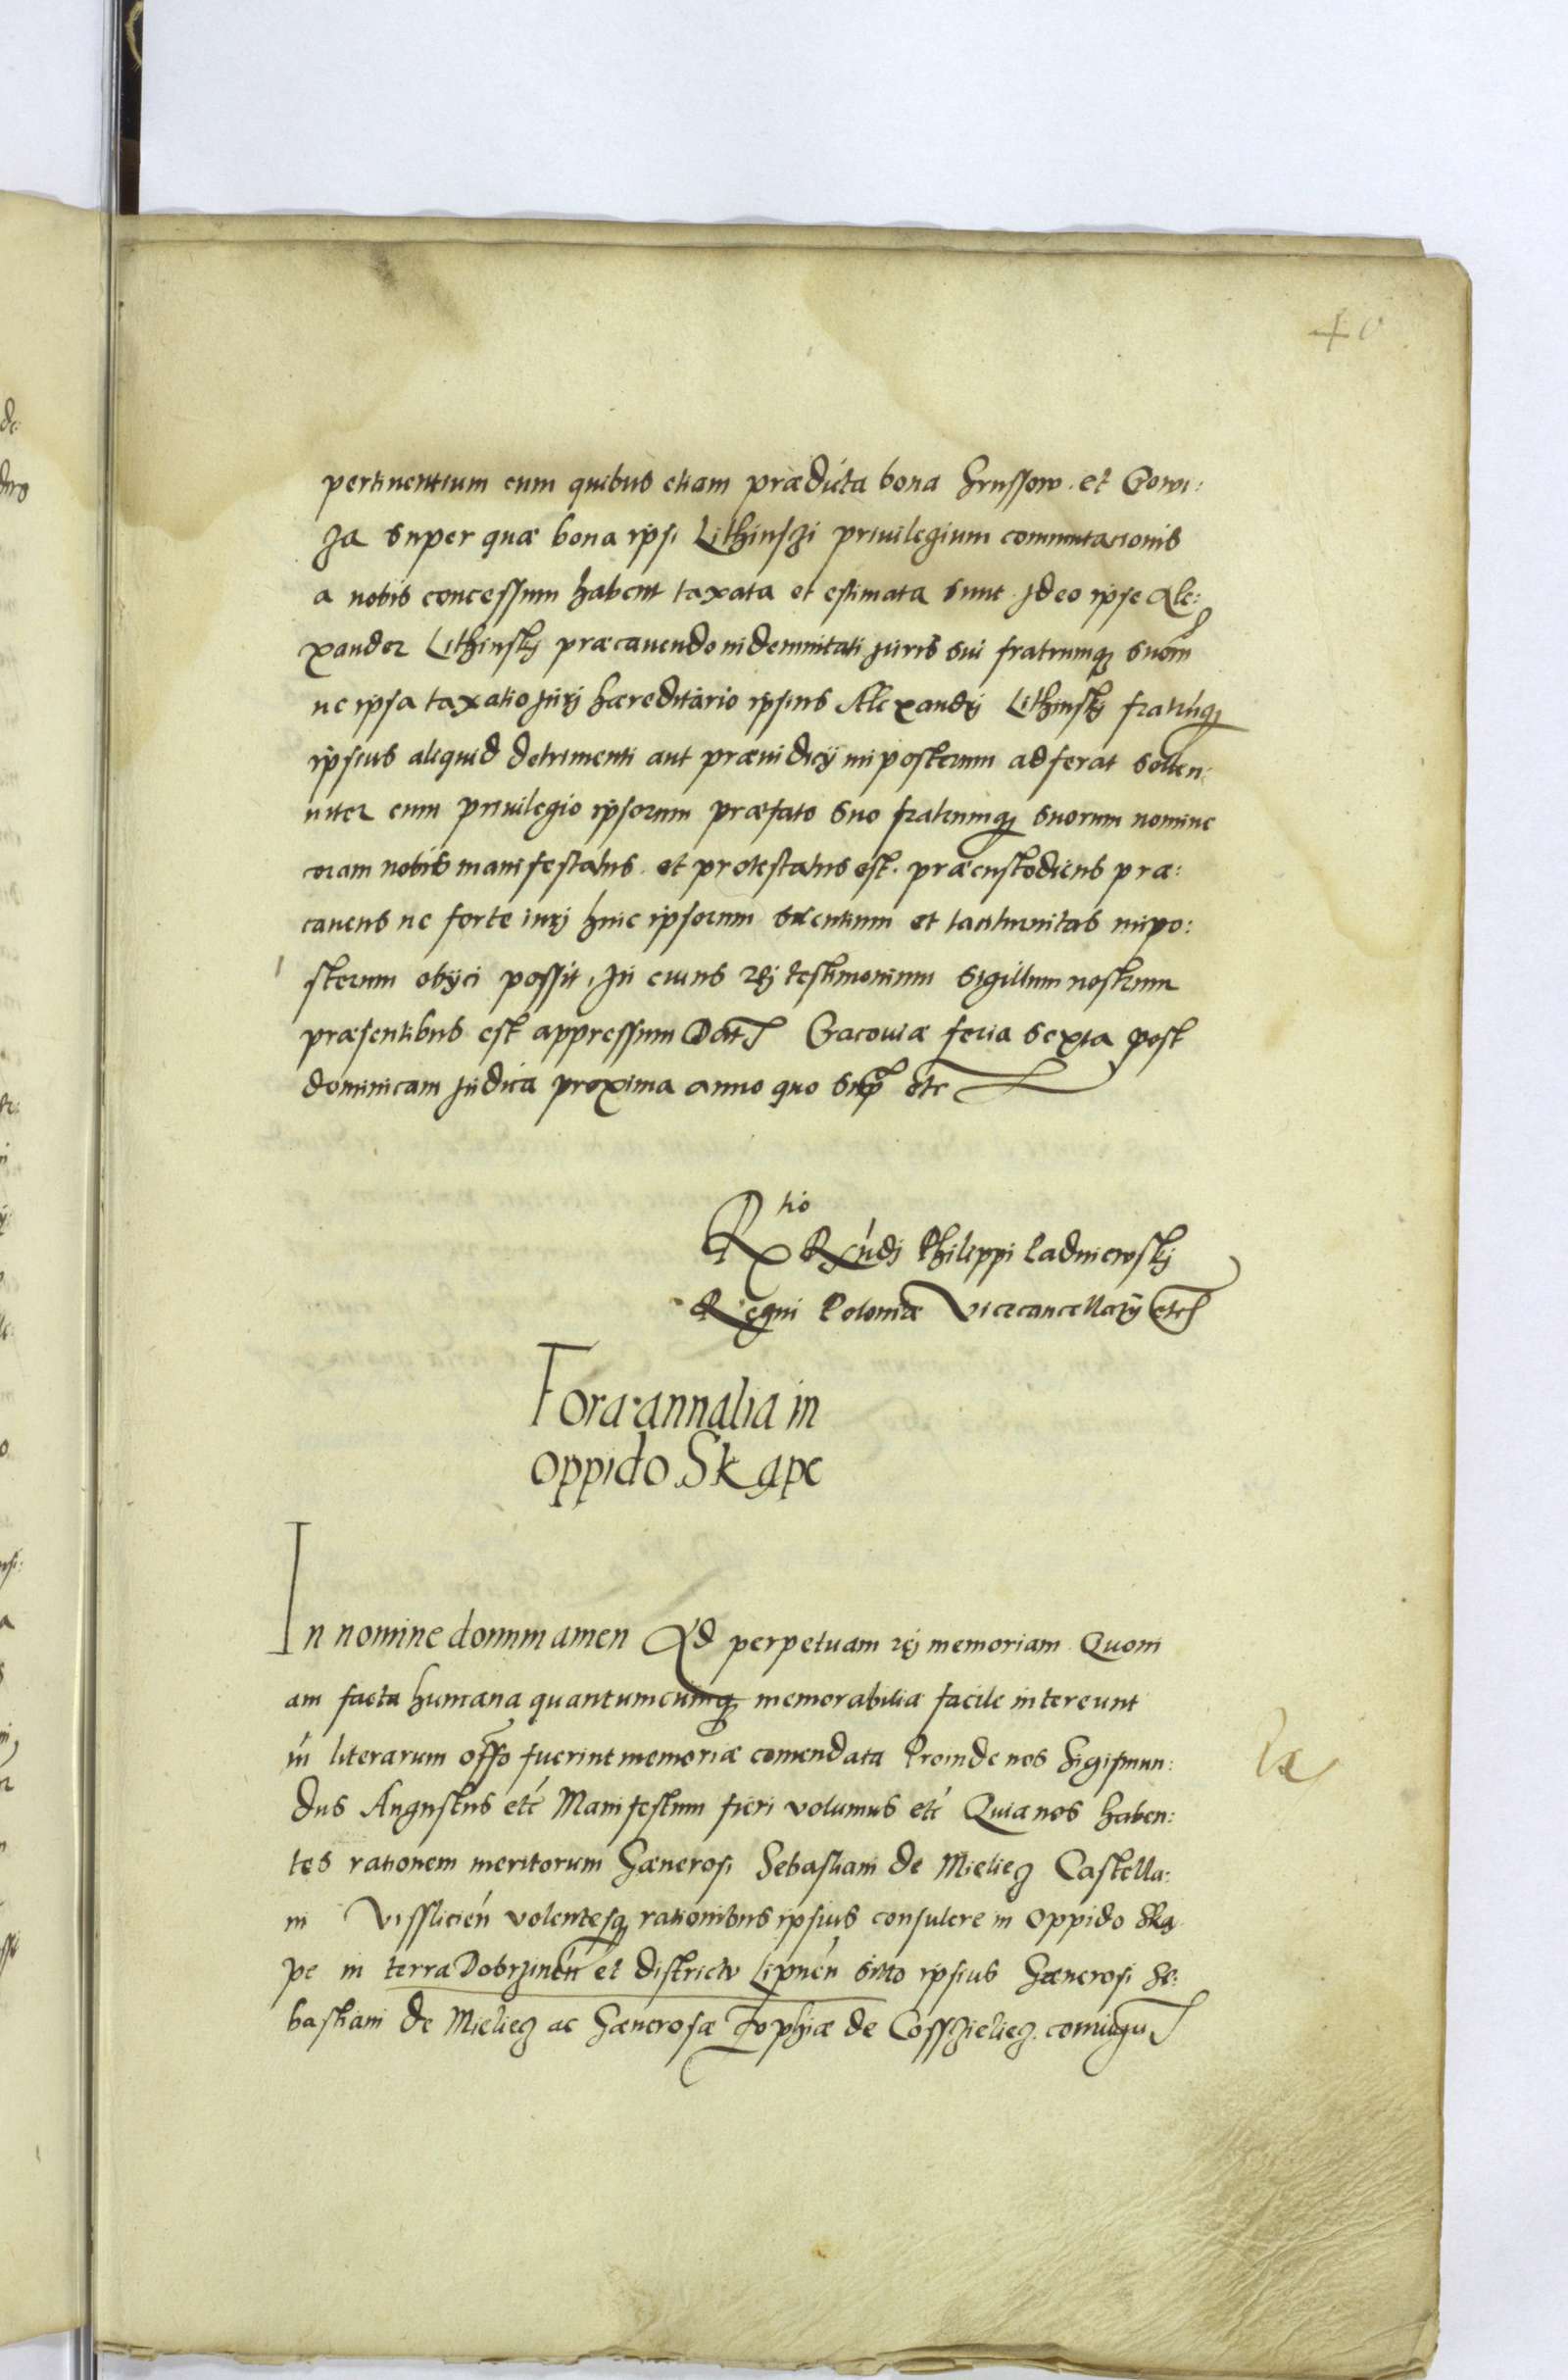 40
pertinentium cum quibus etiam prædicta bona Hrussow. et Gowi:
za super quæ bona ipsi Lithinszi priuilegium commutacionis
a nobis concessum habent taxata et estimata sunt. Jdeo ipse Ale:
xander Lithinskj præcauendo indemnitati juris sui fratrumq suom
ne ipsa taxatio jurj hæreditario ipsius Alexandrj Lithinskj fratrūq
ipsius aliquid detrimenti aut præiudicÿ inposterum adferat solen:
niter cum priuilegio ipsorum præfato suo fratrumq suorum nomine
coram nobis manifestatus. et protestatus est. præcustodiens præ:
cauens ne forte iurj huic ipsorum silentium et taciturnitas inpo:
sterum obÿci possit, Jn cuius rej testimonium sigillum nostrum
præsentibus est appressum Dat Cracouiæ feria sexta post
dominicam judica proxima anno quo sup etc
Rtio Rxndj Philippi Padniewskj
Regni Poloniæ Vicecancellarÿ etc
Fora annalia in
oppido Skąpe
In nomine domini amen Ad perpetuam rej memoriam Quoni
am facta humana quantumcumq memorabilia facile intereunt
ni literarum offo fuerint memoriæ comendata Proinde nos Sigismun:
dus Augustus etc Manifestum fieri volumus etc Quia nos haben:
tes rationem meritorum Gænerosi Sebastiani de Mieliecz Castella:
ni Visslicień volentesq rationibus ipsius consulere in oppido Ską
pe in terra Dobrzinen et districtu Lipnen sitto ipsius Gænerosi Se:
bastiani de Mieliecz ac Gænerosæ Zophiæ de Cosszieliecz. coniugu